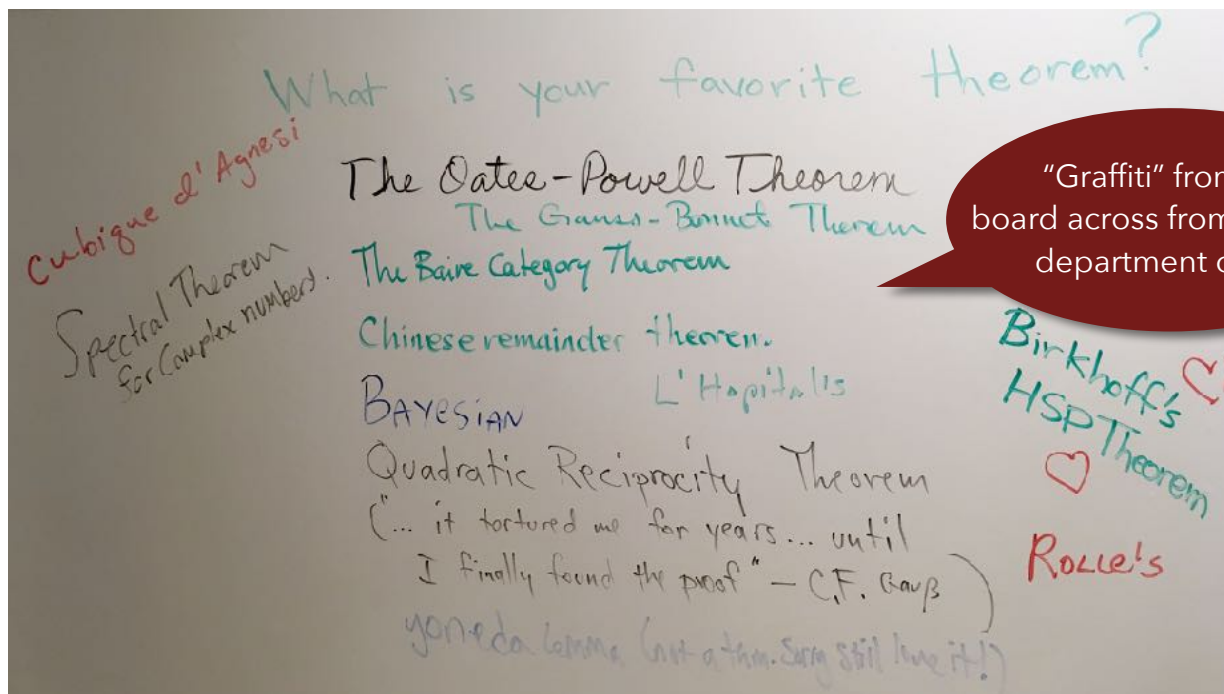 What is your favorite theorem?
Cubique d'Agnesi
Spectral Theorem
for Complex numbers.
The Oates-Powell Theorem
The Gauss-Bonnet Therem
The Baire Category Theorem
Chinese remainder theorem.
L'Hopital's
BAYESIAN
Quadratic Reciprocity Theorem
("... it tortured me for years... until
I finally found the proof" – C.F. Gauß)
yoneda lemma (not a thm. Sorry still love it!)
"Graffiti" from
board across from
department
Birkhoff's
HSP Theorem
Rolle's